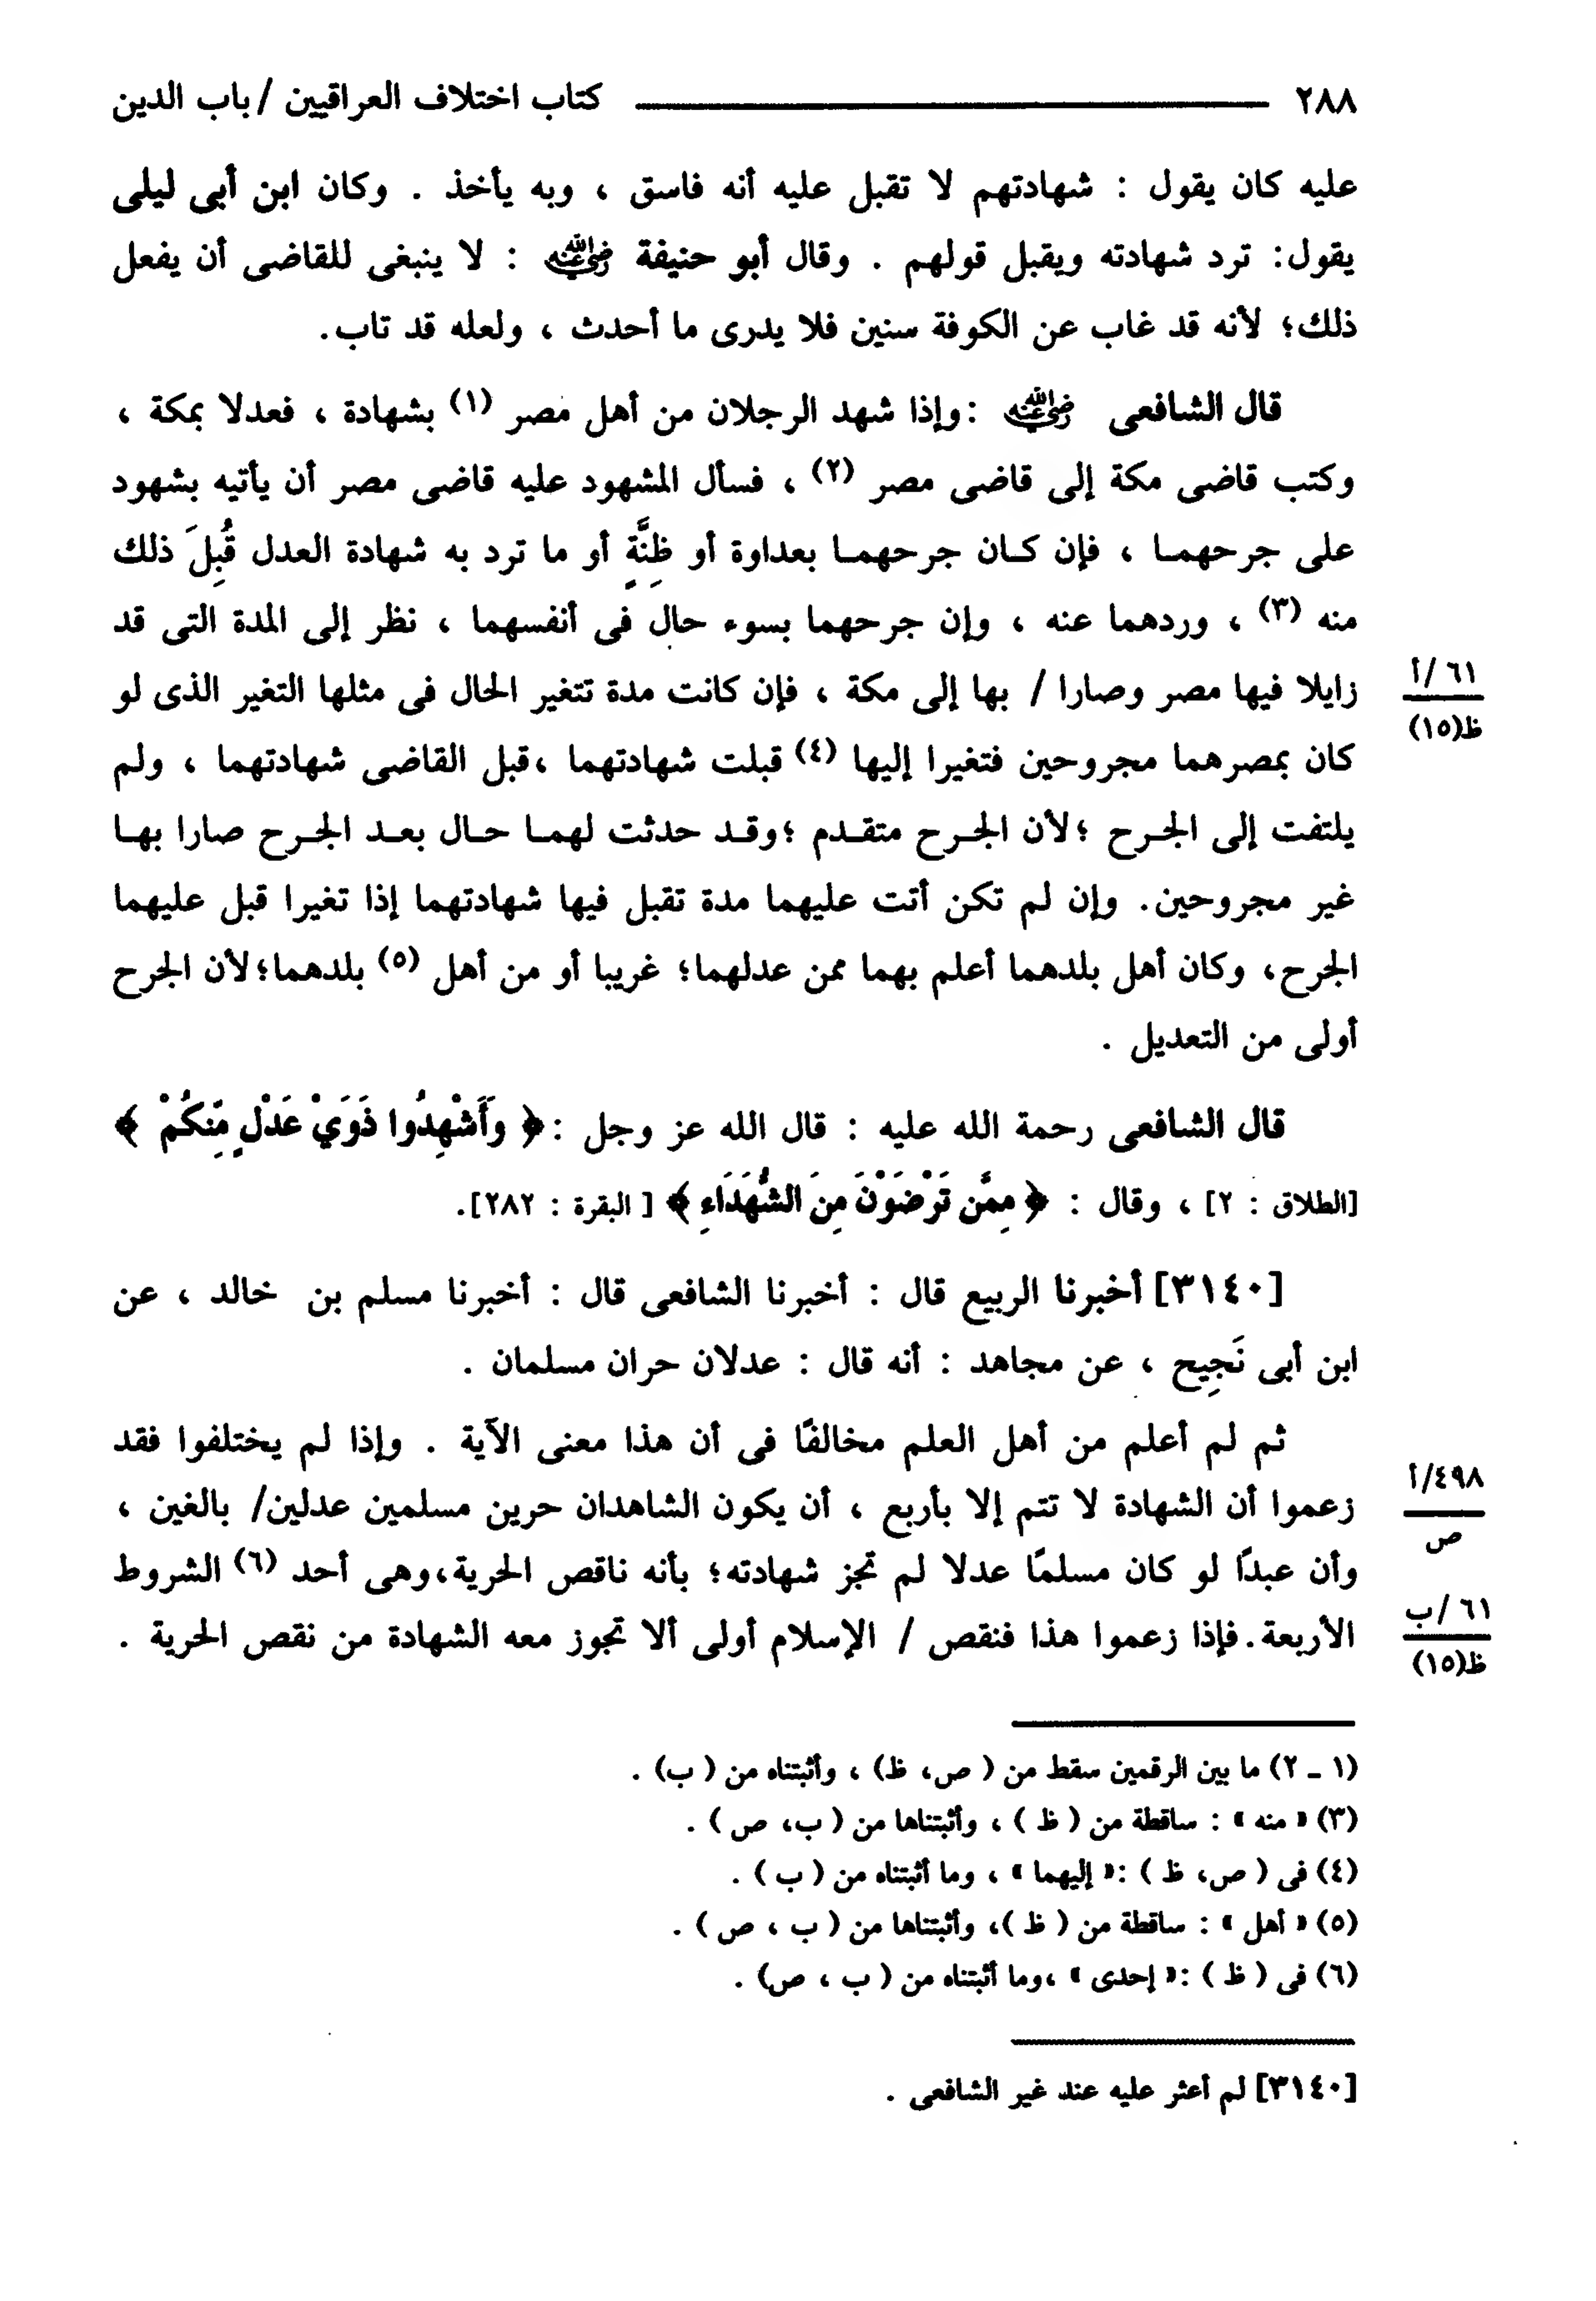 ٢٨٨ كتاب اختلاف العراقيين / باب الدين
عليه كان يقول : شهادتهم لا تقبل عليه أنه فاسق ، وبه يأخذ . وكان ابن أبى ليلى
يقول: ترد شهادته ويقبل قولهم . وقال أبو حنيفة رضي الله عنه : لا ينبغى للقاضى أن يفعل
ذلك؛ لأنه قد غاب عن الكوفة سنين فلا يدرى ما أحدث ، ولعله قد تاب.
قال الشافعى رضي الله عنه :وإذا شهد الرجلان من أهل مصر (١) بشهادة ، فعدلا بمكة ،
وكتب قاضى مكة إلى قاضى مصر (٢) ، فسأل المشهود عليه قاضى مصر أن يأتيه بشهود
على جرحهما ، فإن كان جرحهما بعداوة أو ظِنَّةٍ أو ما ترد به شهادة العدل قُبِلَ ذلك
منه (٣) ، وردهما عنه ، وإن جرحهما بسوء حال فى أنفسهما ، نظر إلى المدة التى قد
زايلا فيها مصر وصارا / بها إلى مكة ، فإن كانت مدة تتغير الحال فى مثلها التغير الذى لو
٦١/أ
ظ(١٥)
كان بمصرهما مجروحين فتغيرا إليها (٤) قبلت شهادتهما ،قبل القاضى شهادتهما ، ولم
يلتفت إلى الجرح ؛لأن الجرح متقدم ؛وقد حدثت لهما حال بعد الجرح صارا بها
غير مجروحين. وإن لم تكن أتت عليهما مدة تقبل فيها شهادتهما إذا تغيرا قبل عليهما
الجرح، وكان أهل بلدهما أعلم بهما ممن عدلهما؛ غريبا أو من أهل (٥) بلدهما؛لأن الجرح
أولى من التعديل .
قال الشافعى رحمة الله عليه : قال الله عز وجل :﴿ وَأَشْهِدُوا ذَوَيْ عَدْلٍ مِّنكُمْ ﴾
[الطلاق : ٢] ، وقال : ﴿ مِمَّن تَرْضَوْنَ مِنَ الشُّهَدَاءِ ﴾ [ البقرة : ٢٨٢].
[٣١٤٠] أخبرنا الربيع قال : أخبرنا الشافعى قال : أخبرنا مسلم بن خالد ، عن
ابن أبى نَجِيح ، عن مجاهد : أنه قال : عدلان حران مسلمان .
ثم لم أعلم من أهل العلم مخالفًا فى أن هذا معنى الآية . وإذا لم يختلفوا فقد
زعموا أن الشهادة لا تتم إلا بأربع ، أن يكون الشاهدان حرين مسلمين عدلين/ بالغين ،
٤٩٨/أ
ص
وأن عبدًا لو كان مسلمًا عدلا لم تجز شهادته؛ بأنه ناقص الحرية،وهى أحد (٦) الشروط
الأربعة.فإذا زعموا هذا فنقص / الإسلام أولى ألا تجوز معه الشهادة من نقص الحرية .
٦١/ب
ظ(١٥)
(١ - ٢) ما بين الرقمين سقط من ( ص، ظ) ، وأثبتناه من ( ب) .
(٣) « منه » : ساقطة من ( ظ ) ، وأثبتناها من ( ب، ص ) .
(٤) فى ( ص، ظ ) :« إليهما » ، وما أثبتناه من ( ب ) .
(٥) « أهل » : ساقطة من ( ظ )، وأثبتناها من ( ب ، ص ) .
(٦) فى ( ظ ) :« إحدى » ،وما أثبتناه من ( ب ، ص) .
[٣١٤٠] لم أعثر عليه عند غير الشافعى .